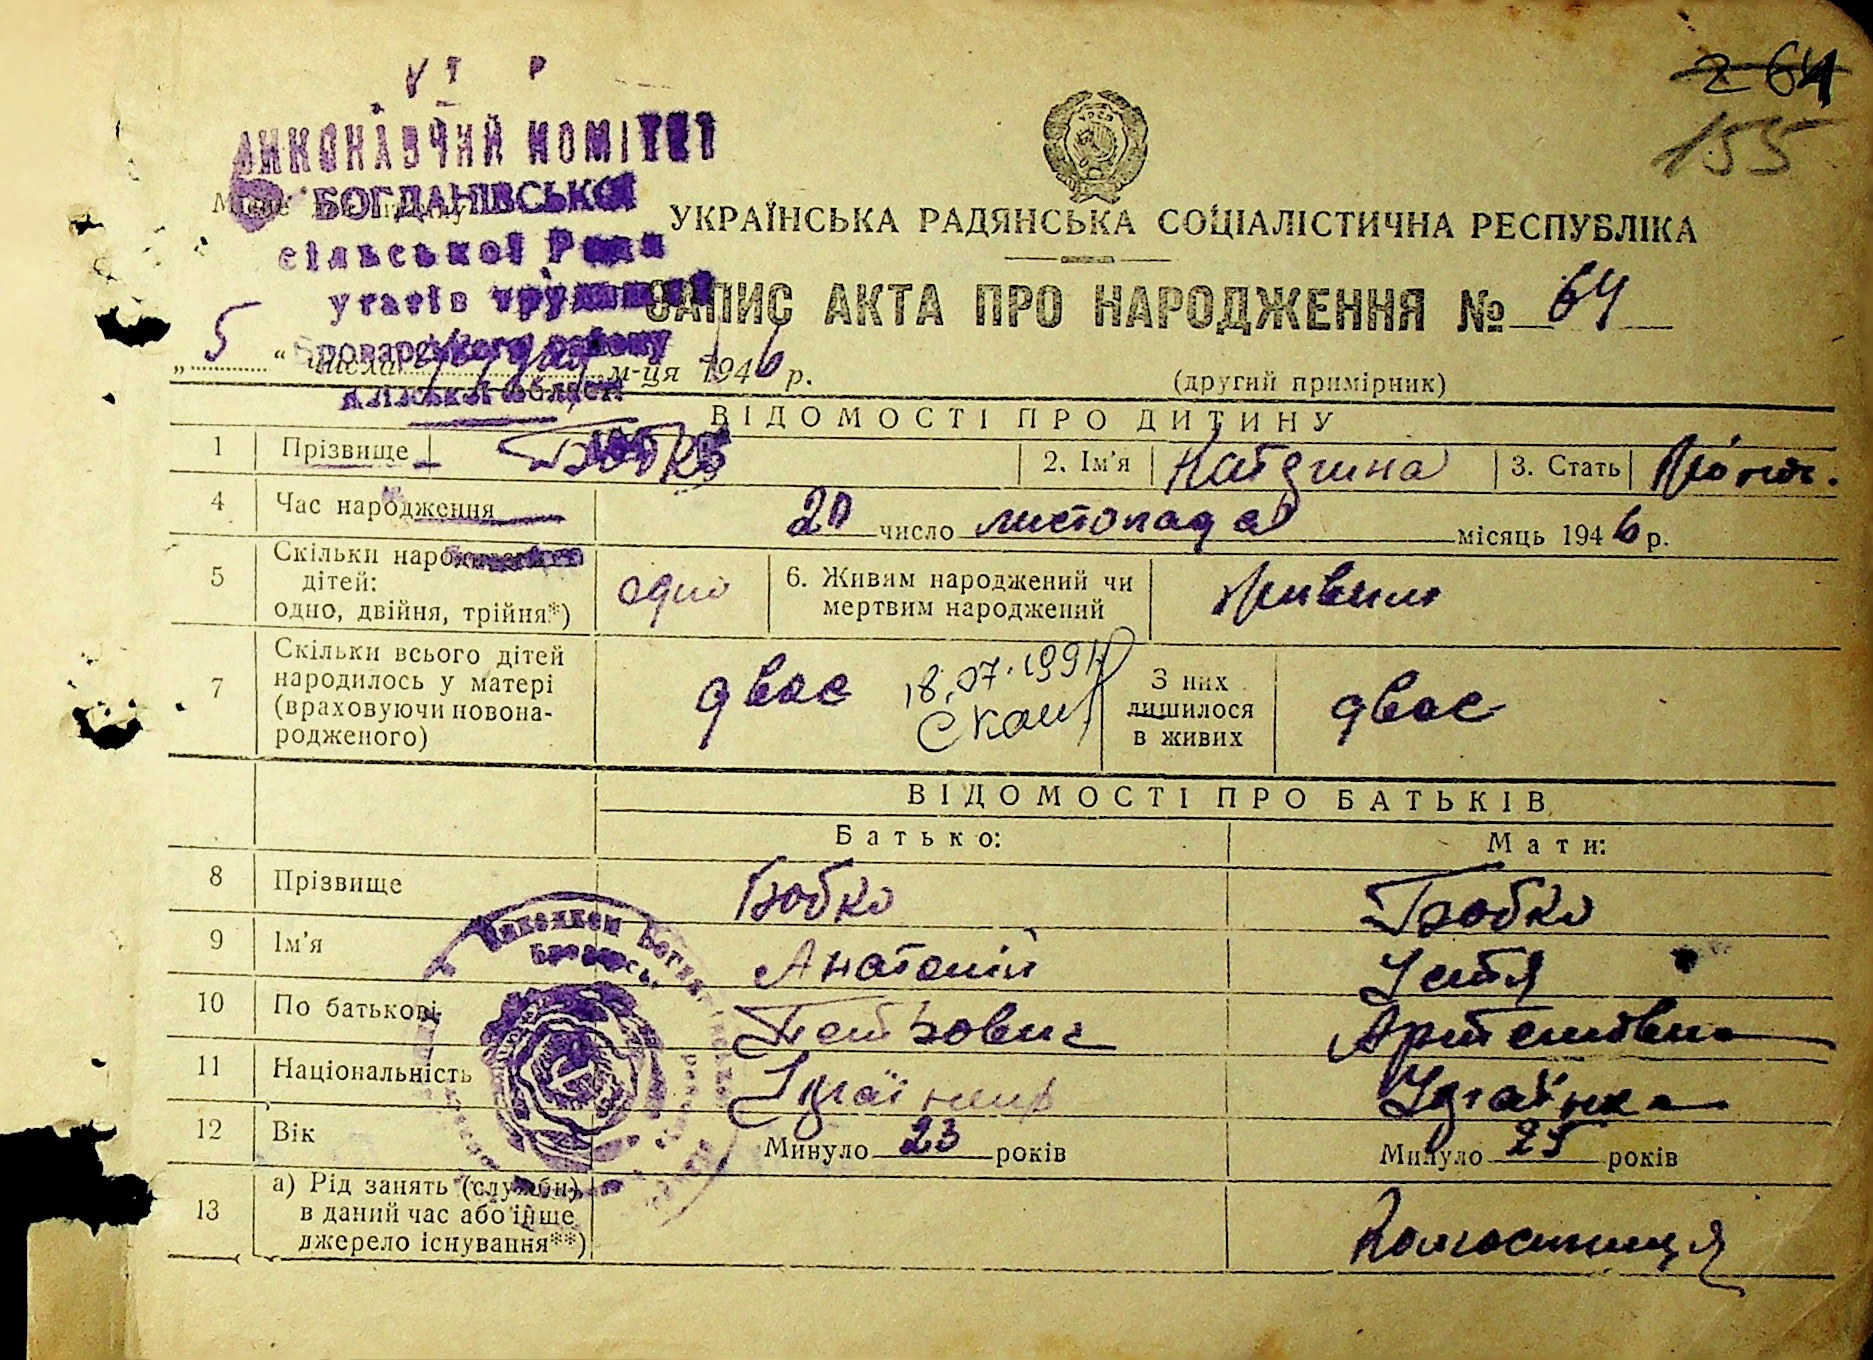 2 64
155
ВИКОНАВЧИЙ КОМІТЕТ
БОГДАНІВСЬКОЇ
сільської Ради
УКРАЇНСЬКА РАДЯНСЬКА СОЦІАЛІСТИЧНА РЕСПУБЛІКА
ЗАПИС АКТА ПРО НАРОДЖЕННЯ № 64
Броварського району
„ 5 “ числа м-ця 1946 р.
(другий примірник)
ВІДОМОСТІ ПРО ДИТИНУ
1 Прізвище Бобко 2. Ім'я Катерина 3. Стать Жіноч.
4 Час народження 20 число листопада місяць 1946 р.
5 Скільки народжено
дітей:
одно, двійня, трійня*) одно 6. Живим народжений чи
мертвим народжений живим
7 Скільки всього дітей
народилось у матері
(враховуючи новона-
родженого) двоє 18.07.1991 З них
лишилося
в живих двоє
ВІДОМОСТІ ПРО БАТЬКІВ
Батько: Мати:
8 Прізвище Бобко Бобко
9 Ім'я Анатолій Устя
10 По батькові Петрович Артемовна
11 Національність Українець Українка
12 Вік Минуло 23 років Минуло 25 років
13 а) Рід занять (служби)
в даний час або інше
джерело існування**) Колгоспниця